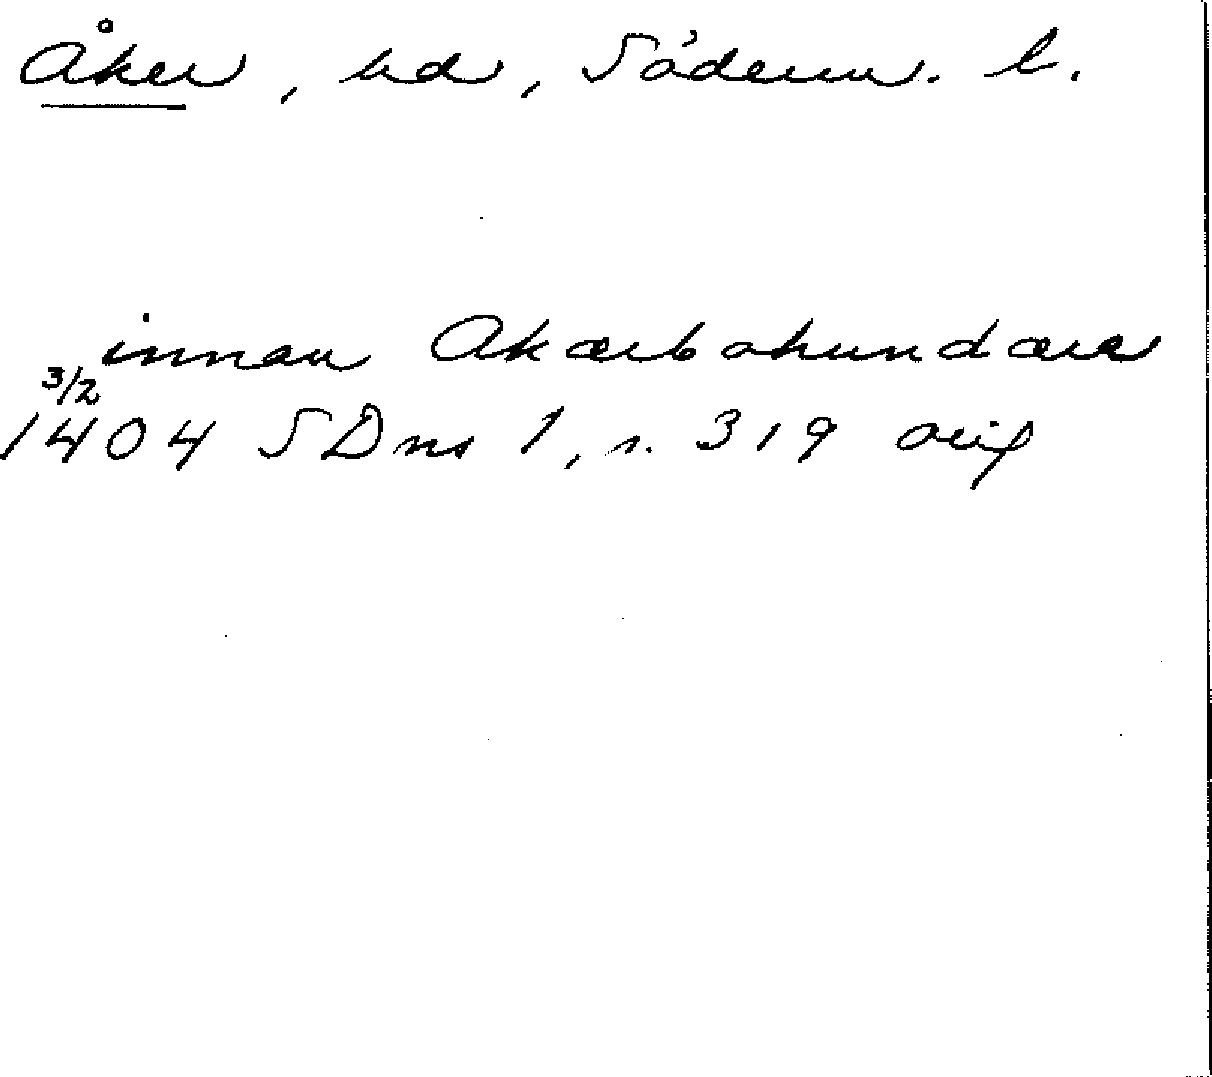 Åker, hd, Söderm. l.
innan Akærbohundære
3/2
1404 SDns 1, s. 319 orig